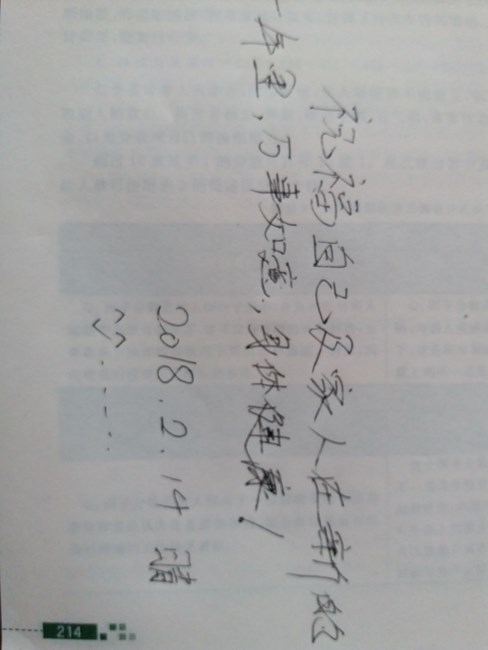 祝福自己及家人在新的
一年里，万事如意，身体健康！
2018.2.14 晴
214